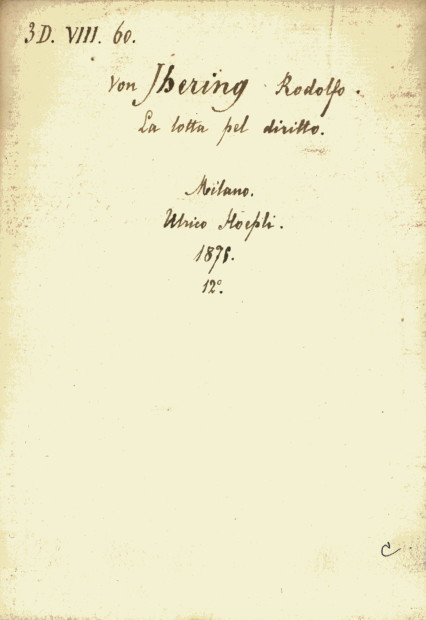 3D. VIII. 60.
Von Jhering Rodolfo.
La lotta pel diritto.
Milano.
Ulrico Hoepli.
1875.
12º.
C